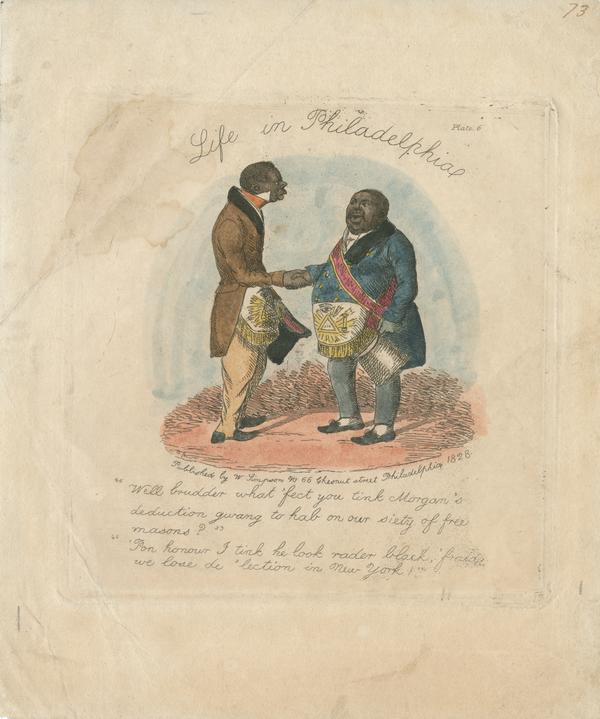 73
Life in Philadelphia
Plate. 6
Published by W Simpson No 66 Chesnut street Philadelphia 1828.
"Well brudder what 'fect you tink Morgan's
deduction gwang to hab on our siety of free
masons?"
"'Pon honour I tink he look rader black, 'fraid
we lose de 'lection in New York!"